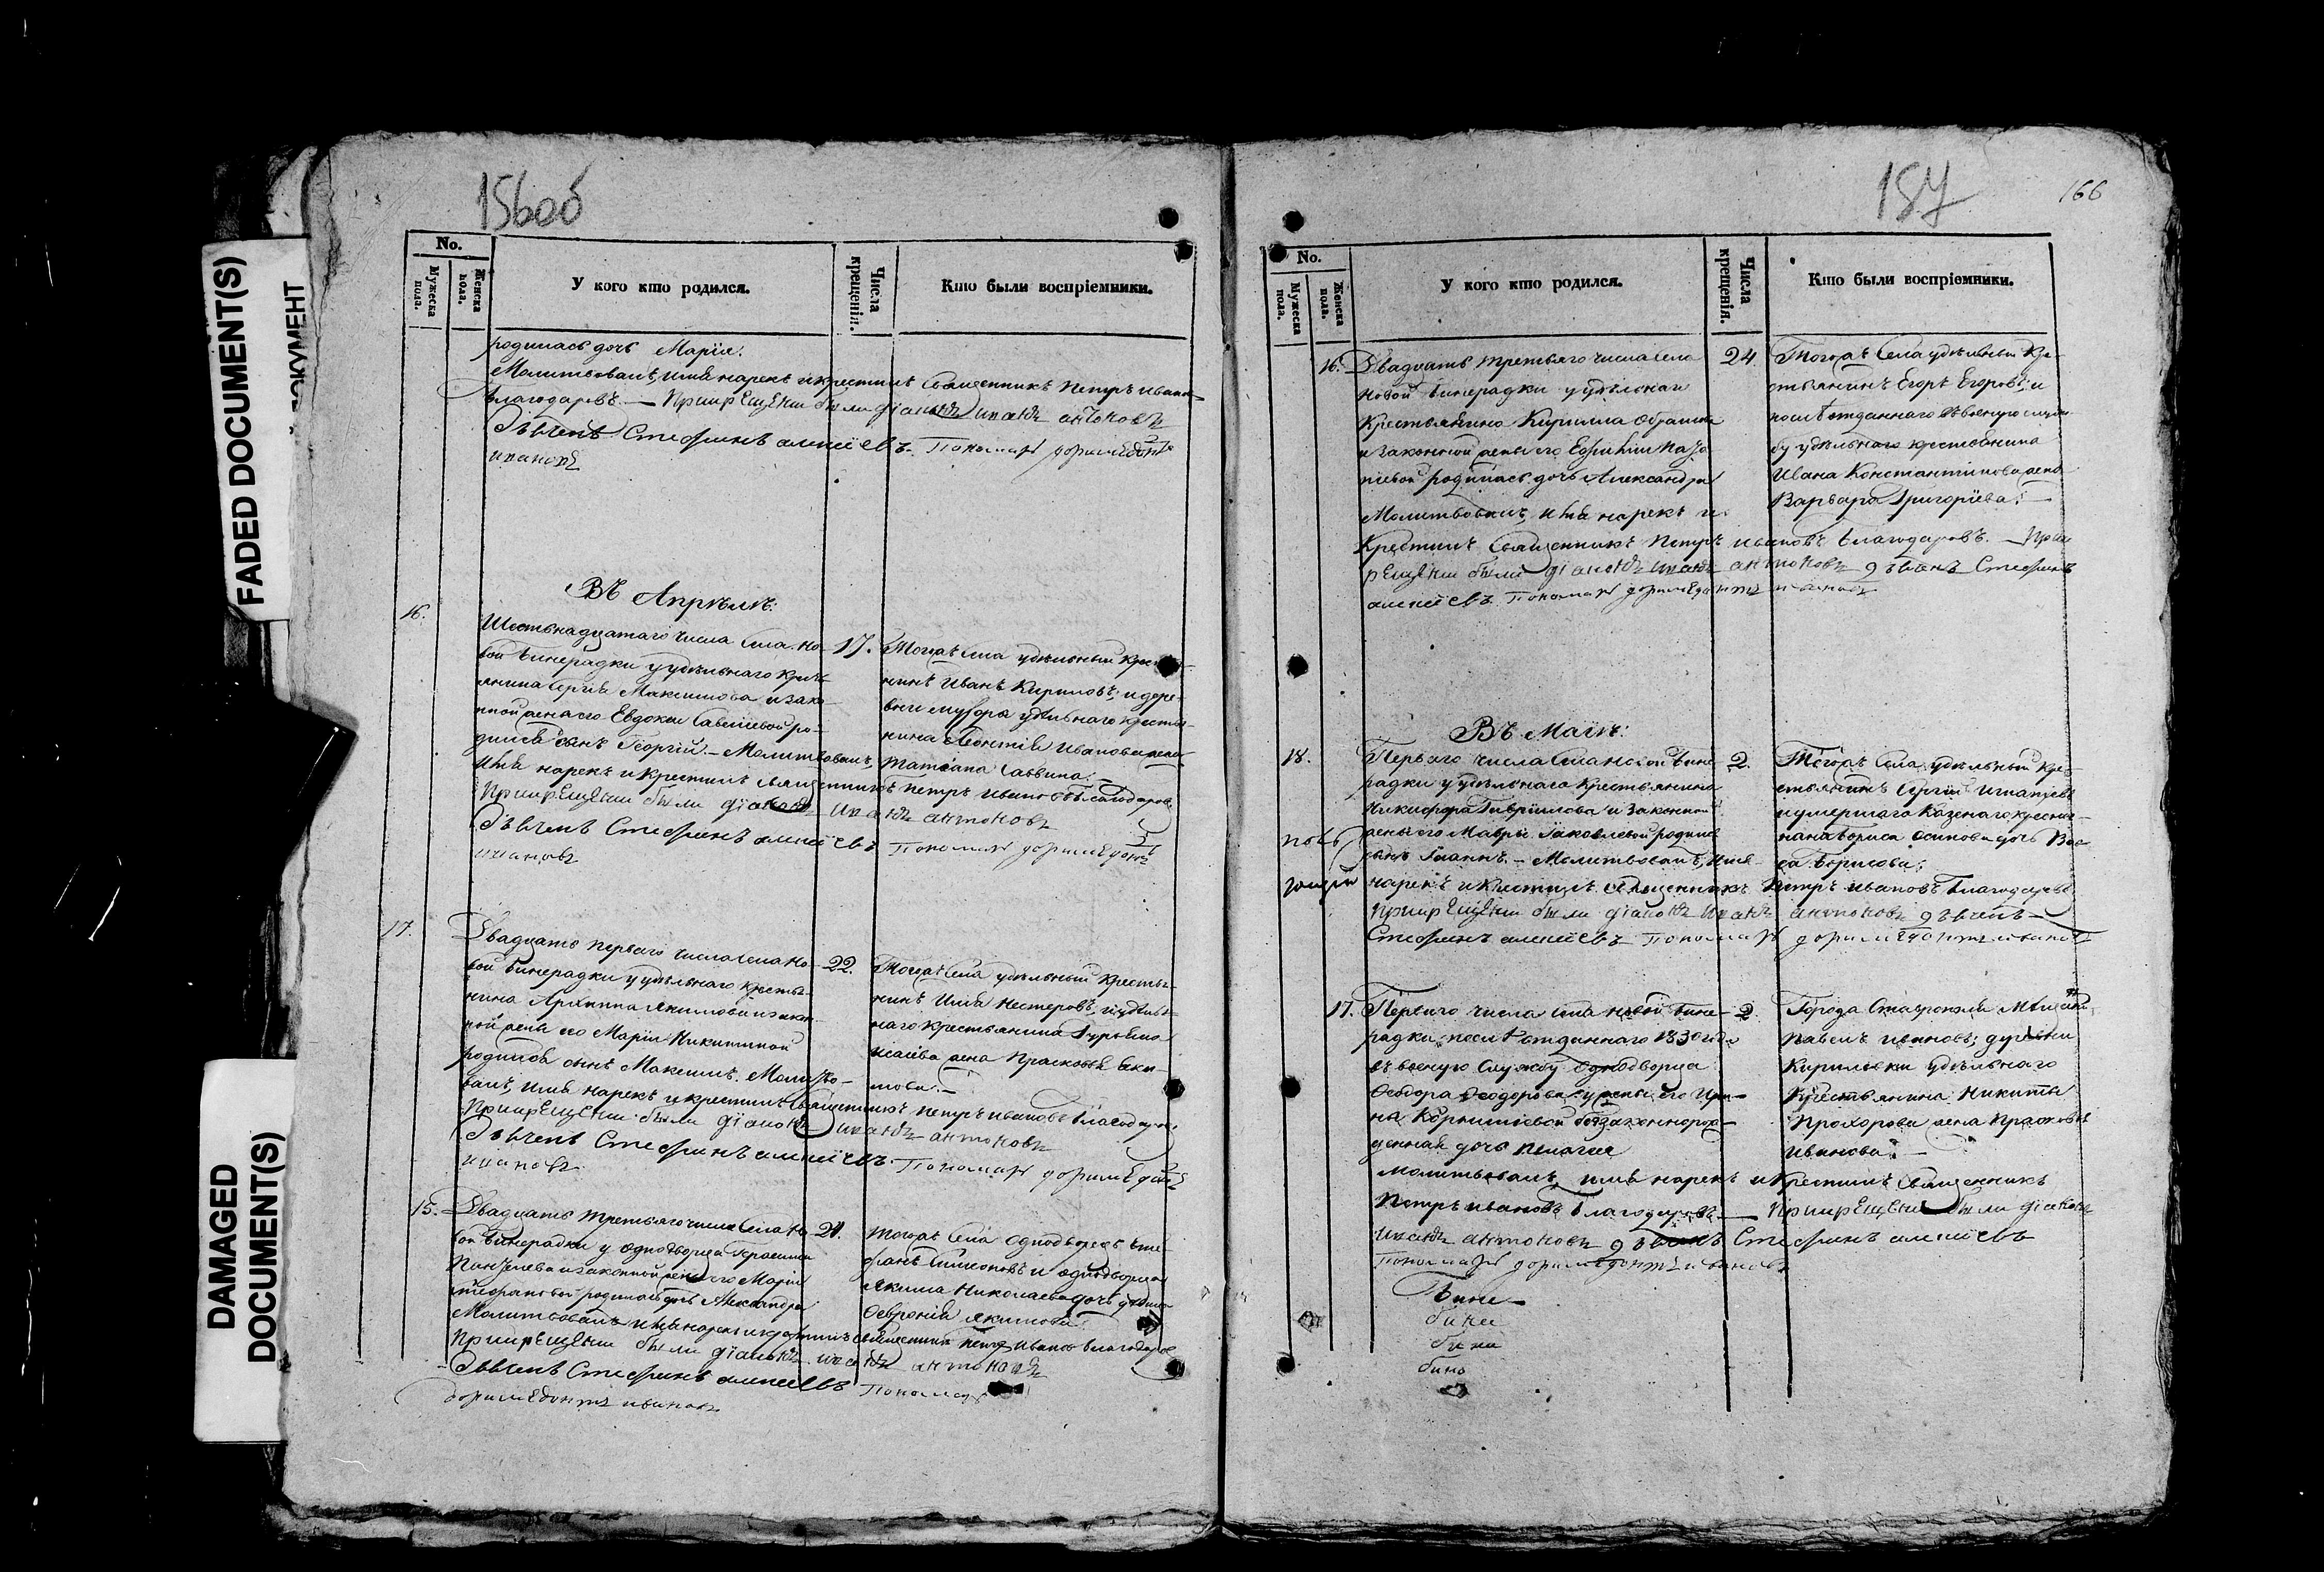 FADED DOCUMENT(S)
ДОКУМЕНТ
DAMAGED
DOCUMENT(S)
156об
No.
Мужеска пола.
Женска пола.
У кого кто родился.
Числа крещенія.
Кто были воспріемники.
родилась дочь Марія.
Молитвовалъ, имя нарекъ и крестилъ Священникъ Петръ Иванов
Благодаровъ. — При крещеніи были діаконъ Иванъ Антоновъ
Дьячекъ Стефанъ Алексіевъ. Пономарь Доримедонтъ
Ивановъ
Въ Апрѣлѣ:
16.
Шестьнадцатаго числа села Но-
вой Бинерадки у удѣльнаго крестья-
янина Сергія Максимова и зако-
нной жены его Евдокіи Савельевой ро-
дился сынъ Георгій. — Молитвовалъ,
имя нарекъ и крестилъ священникъ Петръ Ивановъ Благодаров
При крещеніи были діаконъ Иванъ Антоновъ
Дьячекъ Стефанъ Алексіевъ Пономарь Доримедонтъ
Ивановъ
17.
Тогожъ села удѣльный крестья-
нинъ Иванъ Кириловъ; и дере-
вни удѣльнаго крестья-
нина Леонтія Иванова жена
Татіана Саввина. —
17.
Двадцать перваго числа села Но-
вой Бинерадки у удѣльнаго крестья-
нина Архиппа Якимова и закон-
ной жены его Маріи Никитиной
родился сынъ Максимъ. Молитво-
валъ, имя нарекъ и крестилъ священникъ Петръ Ивановъ Благодаров
При крещеніи были діаконъ Иванъ Антоновъ
Дьячекъ Стефанъ Алексіевъ. Пономарь Доримедонтъ
Ивановъ
22.
Тогожъ села удѣльный крестья-
нинъ Илья Нестеровъ, и удѣль-
наго крестьянина Гурьяна
Исаева жена Прасковья Аки-
мова. —
15.
Двадцать третьяго числа села Но-
вой Бинерадки у однодворца Герасима
и законной жены его Маріи
Стефановой родилась дочь Александра
Молитвовалъ имя нарекъ и крестилъ священникъ Петръ Ивановъ Благодаров
При крещеніи были діаконъ Иванъ Антоновъ
Дьячекъ Стефанъ Алексіевъ Пономарь
Доримедонтъ Ивановъ
24.
Тогожъ села однодворецъ Сте-
фанъ Симеоновъ и однодворца
Якима Николаева дочь дѣвица
Февронія Якимова.
187
166
No.
Мужеска пола.
Женска пола.
У кого кто родился.
Числа крещенія.
Кто были воспріемники.
16.
Двадцать третьяго числа села
Новой Бинерадки у удѣльнаго
крестьянина Кирилла
и законной жены его Ефиміи
родилась дочь Александра
Молитвовалъ, имя нарекъ и
крестилъ Священникъ Петръ Ивановъ Благодаровъ. — При к
рещеніи были діаконъ Иванъ Антоновъ дьячекъ Стефанъ
Алексіевъ Пономарь Доримедонтъ Ивановъ
24.
Тогожъ села удѣльный кре-
стьянинъ Егоръ Егоровъ; и
послѣ отданнаго въ военную служ-
бу удѣльнаго крестьянина
Ивана Константинова жена
Варвара Григорьева. —
Въ Маіѣ:
18.
Перваго числа села Новой Бине
радки у удѣльнаго крестьянина
Никифора Гавріилова и законной
жены его Мавры Іаковлевой родился
сынъ Іоаннъ. — Молитвовалъ, имя
нарекъ и крестилъ Священникъ Петръ Ивановъ Благодаровъ
При крещеніи были діаконъ Иванъ Антоновъ дьячекъ
Стефанъ Алексіевъ Пономарь Доримедонтъ Ивановъ
2.
Тогожъ села удѣльный кре-
стьянинъ Сергій Игнатьевъ
и умершаго казеннаго крестья-
нина Бориса Осипова дочь Вас
са Борисова.
17.
Перваго числа села Новой Бине-
радки послѣ отданнаго 1830 года
въ военую службу однодворца
Феодора Феодорова у жены его Ири-
ны Корнильевой беззаконнорож-
денная дочь Пелагія
Молитвовалъ, имя нарекъ и крестилъ Священникъ
Петръ Ивановъ Благодаровъ — При крещеніи были діаконъ
Иванъ Антоновъ дьячекъ Стефанъ Алексіевъ
Пономарь Доримедонтъ Ивановъ
2.
Города Ставрополя мѣщанинъ
Павелъ Ивановъ; деревни
Кириловки удѣльнаго
крестьянина Никиты
Прохорова жена Прасковья
Иванова. —
Бине
бине
бине
бинь